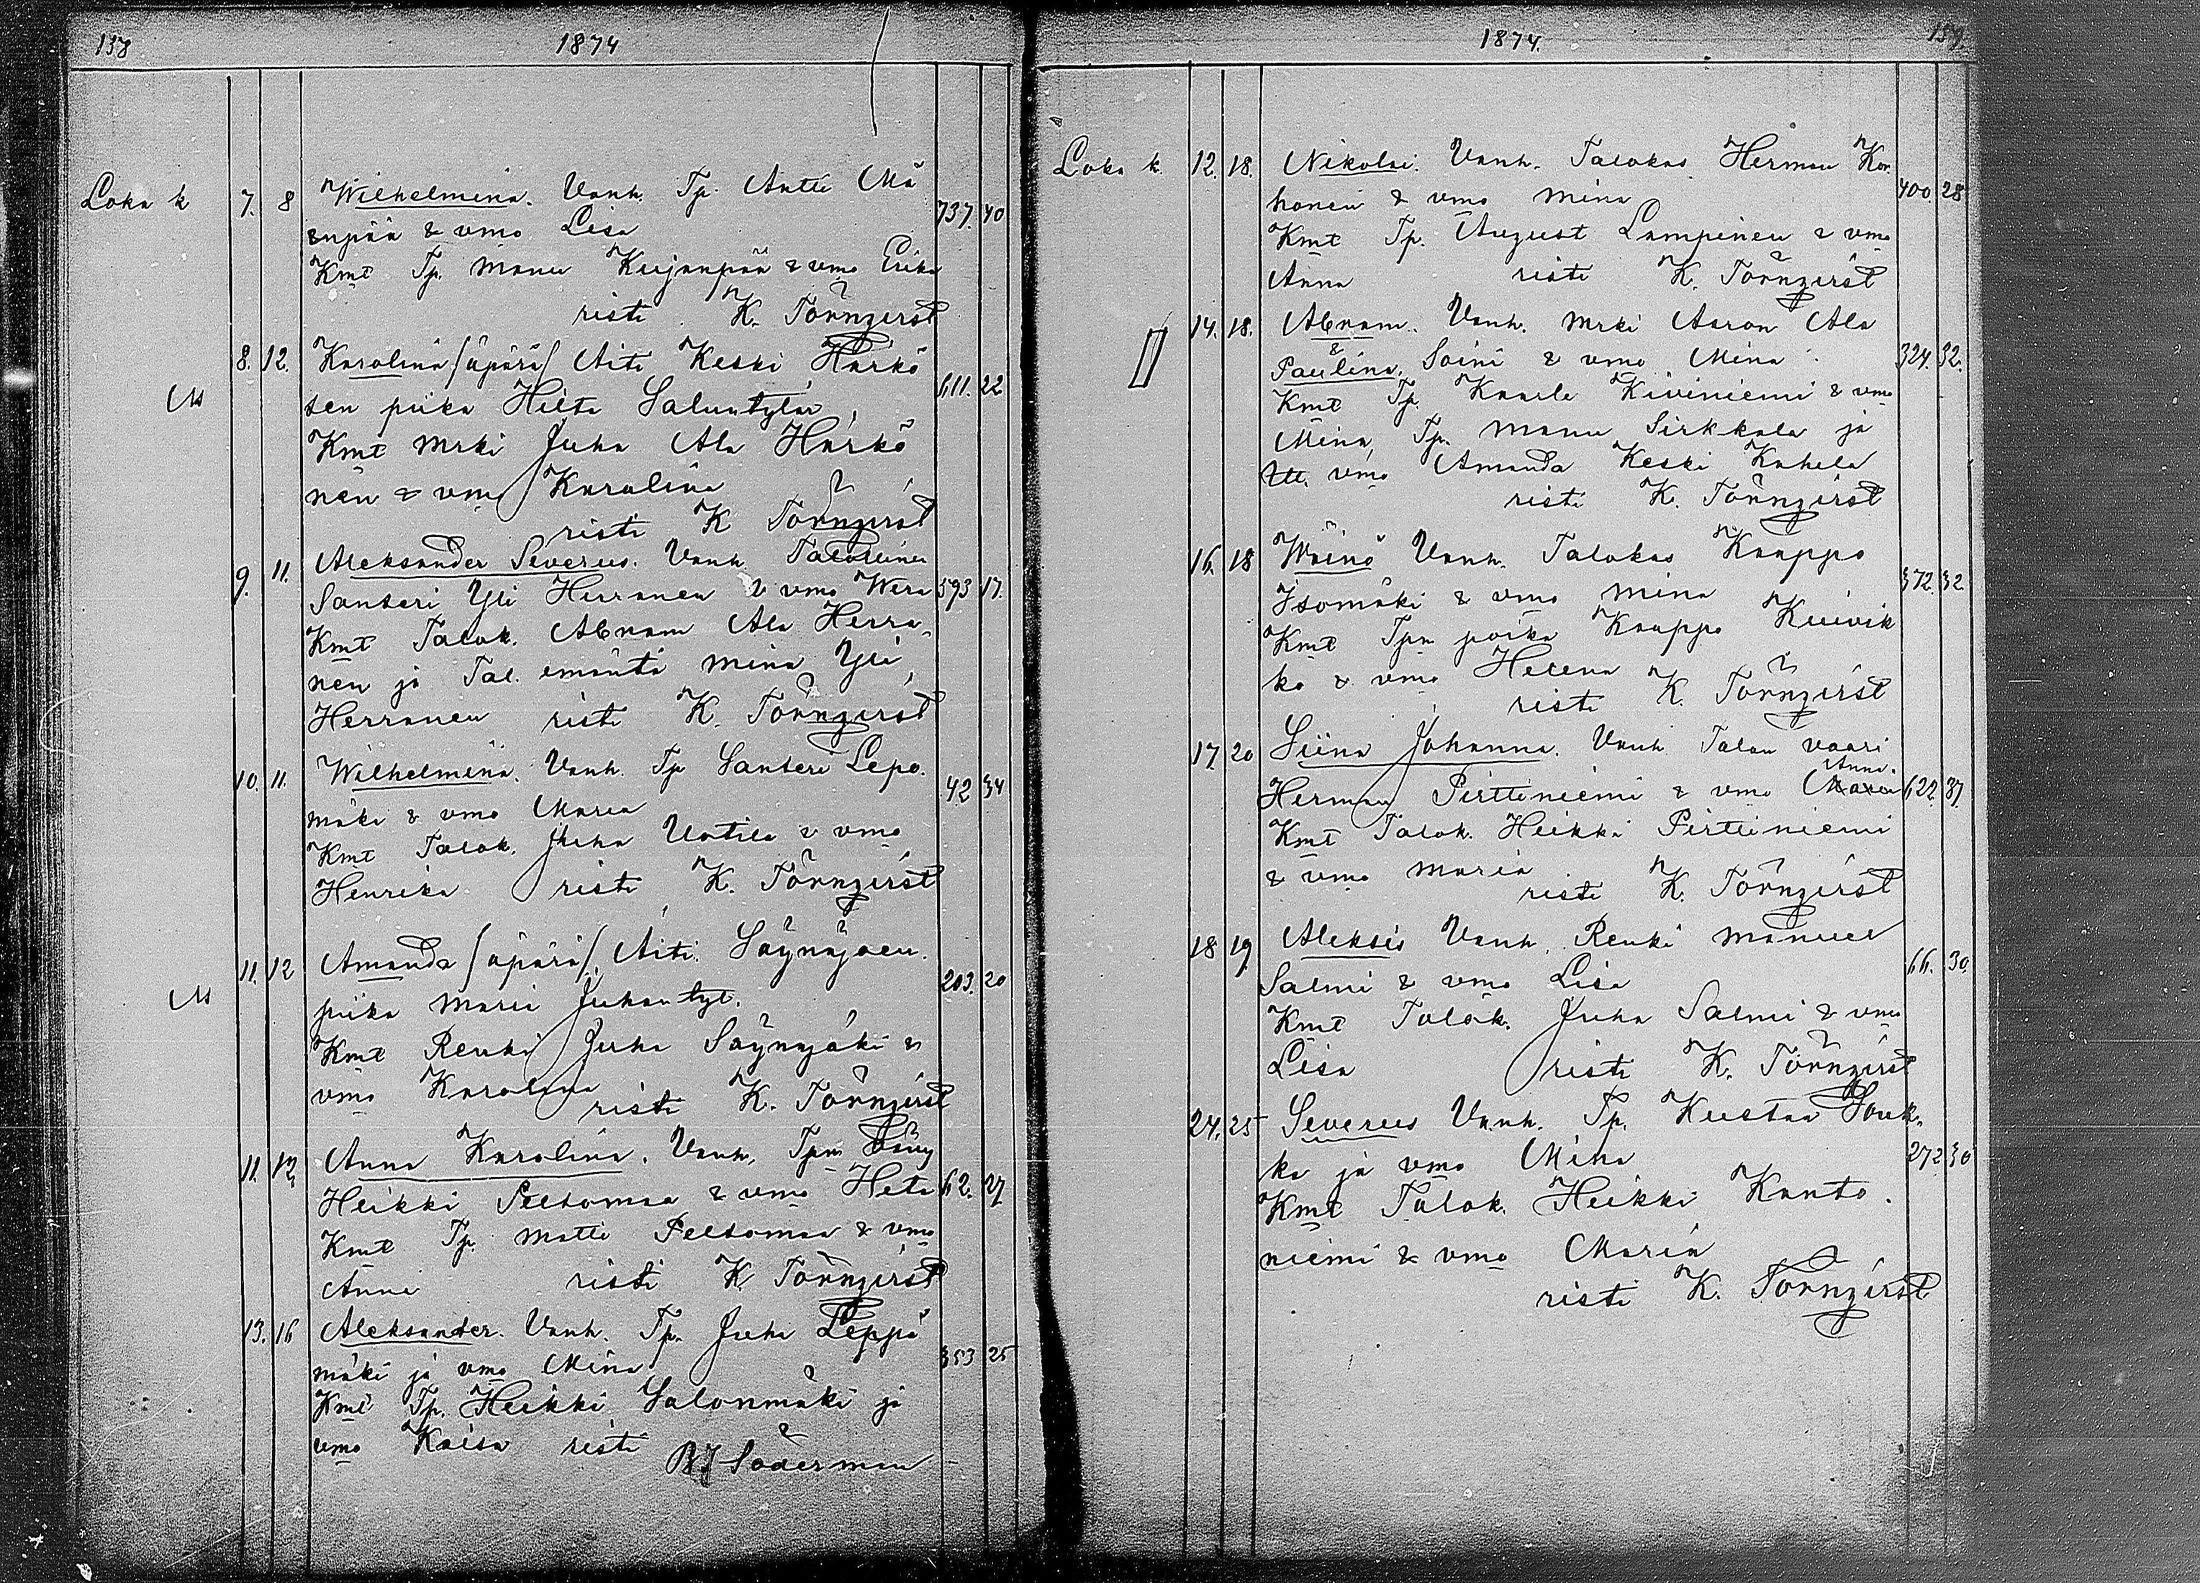 138 1874
Loka k 7. 8 Wilhelmina. Vanh. Tp. Antti Mä
enpää & vmo Lisa 737. 40
Kmt Tp. Manu Kujanpää & vmo Erika
risti K. Törnqvist
8. 12. Karolina /äpärä/ Äiti Keski Härkö
M sen piika Hilta Saluntytär, 611. 22
Kmt Mrki Juha Ala Härkö
nen & vmo Karolina
risti K Törnqvist
9. 11. Aleksander Severus. Vanh. Talollinen
Santeri Yli Herranen & vmo Wera 593 17.
Kmt Talok. Abram Ala Herra
nen ja Tal. emäntä Mina Yli
Herranen risti K. Törnqvist
10. 11. Wilhelmina. Vanh. Tp Santeri Lepo.
mäki & vmo Maria 42 34
Kmt Talok. Juha Uotila & vmo
Henrika risti K. Törnqvist
11. 12 Amanda /äpärä/ Äiti. Säynäjoen.
M piika Maria Juhantyt. 203. 20
Kmt Renki Juha Säynäjäki &
vmo Karolina
risti K. Törnqvist
11. 12 Anna Karolina. Vanh. Tpm
Heikki Peltomaa & vmo Heta 62. 27
Kmt Tp. Matti Peltomaa & vmo
Anna risti K Törnqvist
13. 16 Aleksander. Vanh. Tp. Juha Leppä
mäki ja vmo Mina 353 25
Kmt Tp. Heikki Salonmäki ja
vmo Kaisa risti
BJ Söderman
1874. 159.
Loka k. 12. 18. Nikolai. Vanh. Talokas Herman Kor
honen & vmo Mina 400. 28
Kmt Tp. August Lampinen & vmo
Anna risti K. Törnqvist
14. 18. Abram. Vanh. Mrki Aaron Ala
& Paulina. Soini & vmo Mina. 324. 32.
Kmt Tp. Kaarle Kiviniemi & vmo
Mina, Tp. Manu Sirkkala ja
vmo Amanda Keski Kahela
risti K. Törnqvist
16. 18 Wäinö Vanh. Talokas Kaappo
Isomäki & vmo Mina 372. 32
Kmt Tpn poika Kaappo Kuivik
ko & vmo Helena
risti K. Törnqvist
17. 20 Siina Johanna. Vanh Talon vaari
Anna.
Herman Pirttiniemi & vmo Maria 622. 37.
Kmt Talok. Heikki Pirttiniemi
& vmo Maria
risti K. Törnqvist
18 19 Aleksis Vanh. Renki Manuel
Salmi & vmo Lisa 66. 30.
Kmt Talok. Juha Salmi & vmo
Lisa risti K. Törnqvist
24. 25 Severus Vanh. Tp. Kustaa Souk.
ka ja vmo Mina 272 30
Kmt Talok. Heikki Kanto.
niemi & vmo Maria
risti K. Törnqvist